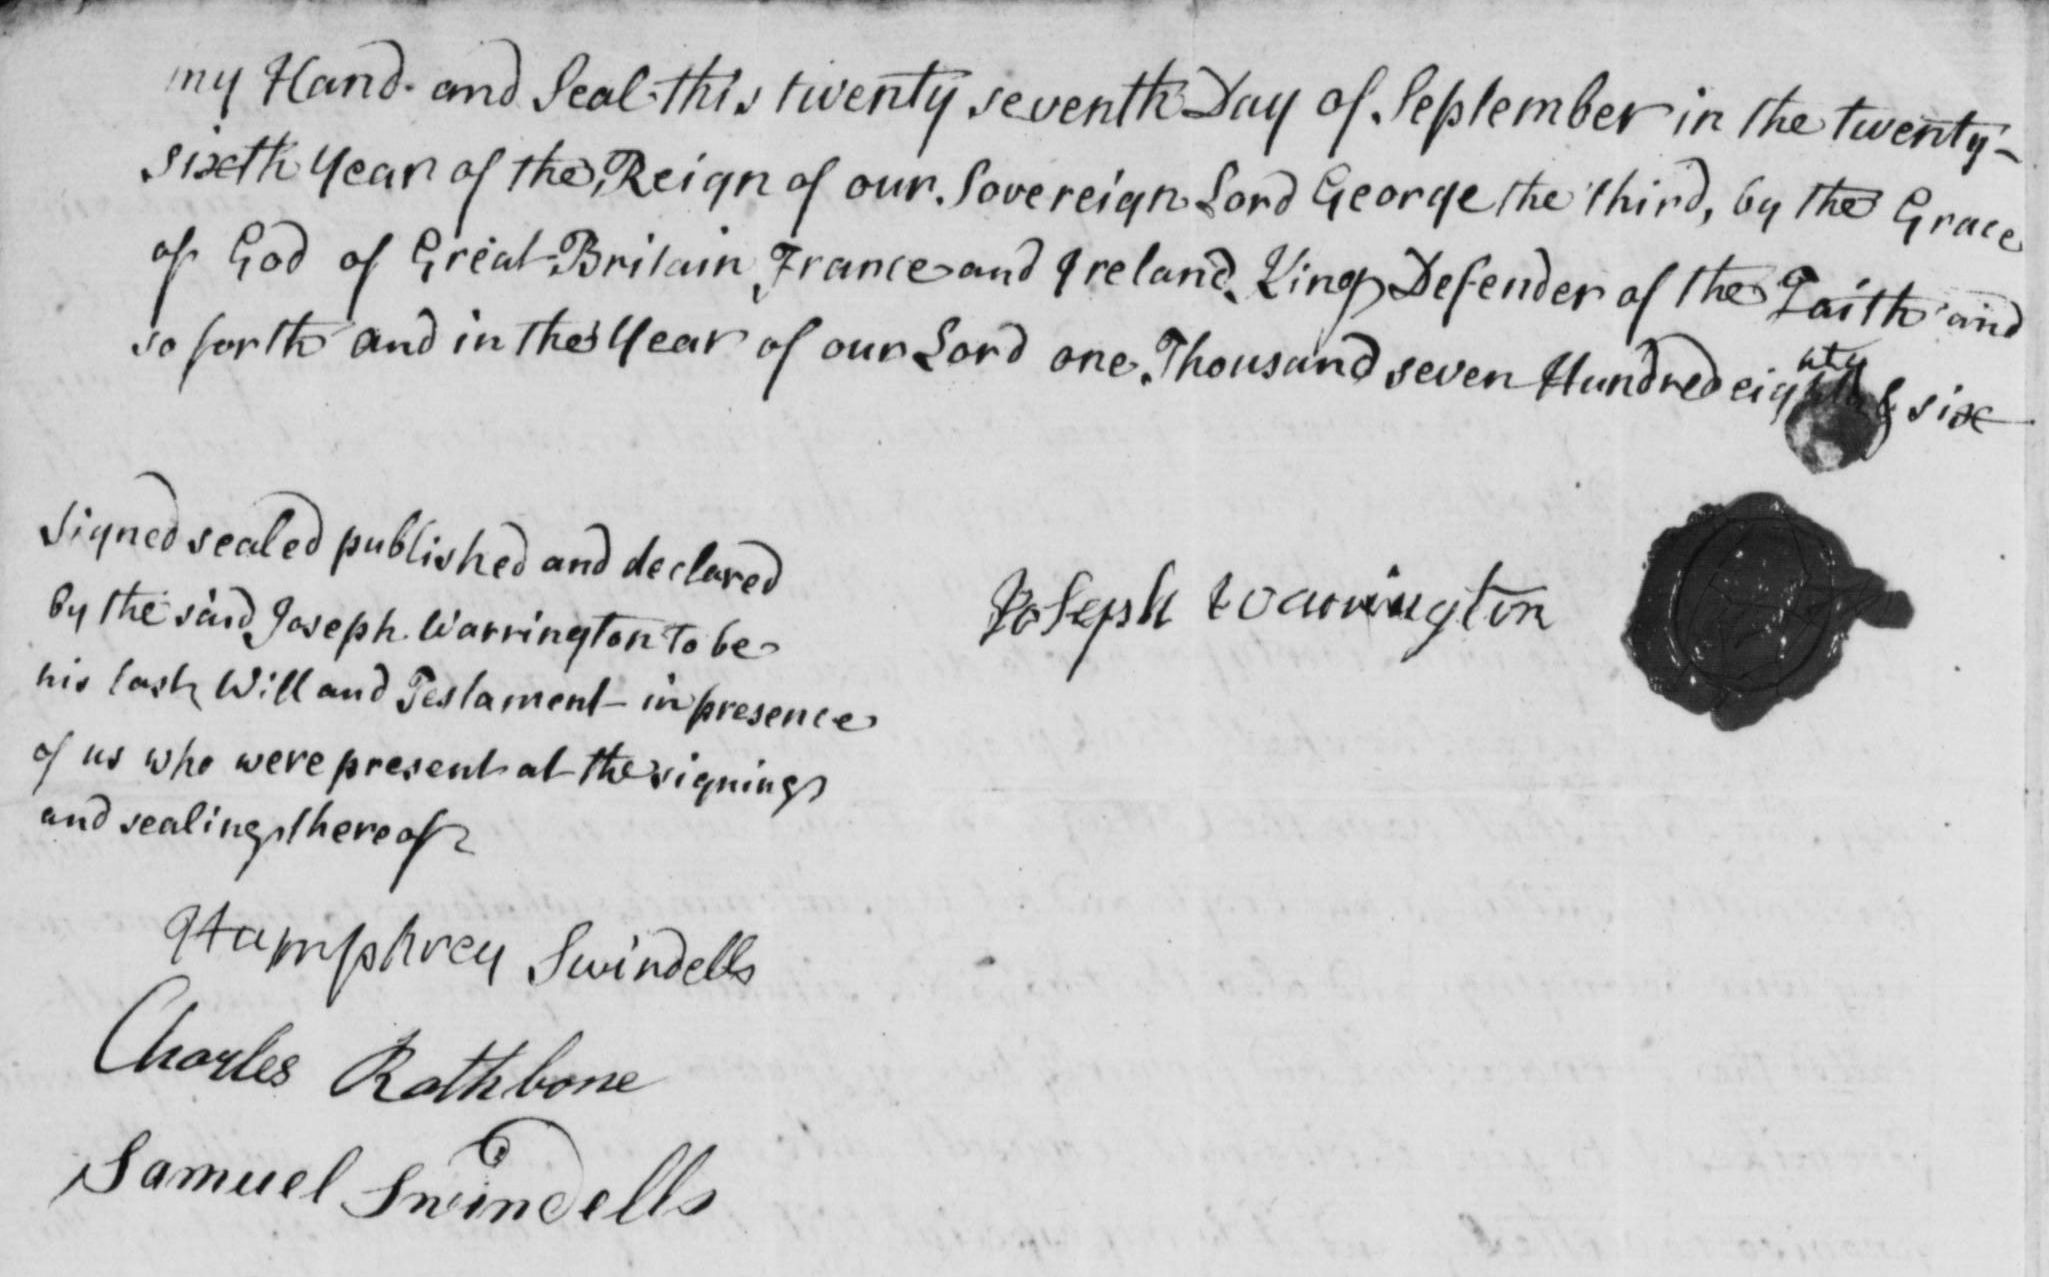 my Hand and Seal this twenty seventh Day of September in the twenty-
sixth Year of the Reign of our Sovereign Lord George the third, by the Grace
of God of Great Britain, France and Ireland, King, Defender of the Faith and
so forth and in the Year of our Lord one Thousand seven Hundred eighty & six
signed sealed published and declared
by the said Joseph Warrington to be
his last Will and Testament in presence
of us who were present at the signing
and sealing thereof
Joseph Warrington
Humphrey Swindells
Charles Rathbone
Samuel Swindells